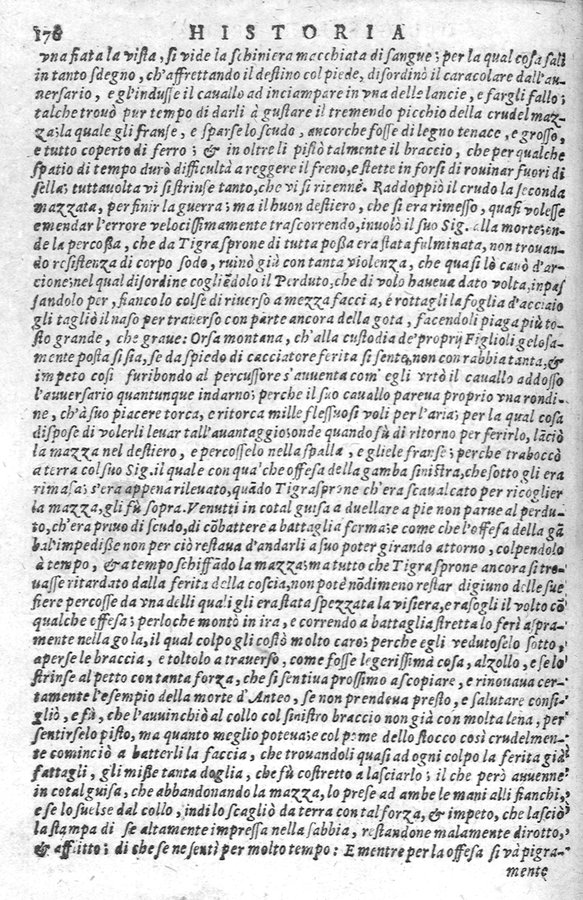 178 HISTORIA
vna fiata la vista, si vide la schiniera macchiata di sangue; per la qual cosa salì
in tanto sdegno, ch'affrettando il destino col piede, disordinò il caracolare dall'au-
uersario, e gl'indusse il cauallo ad inciampare in vna delle lancie, e fargli fallo;
talche trouò pur tempo di darli à gustare il tremendo picchio della crudel maz-
za; la quale gli franse, e sparse lo scudo, ancorche fosse di legno tenace, e grosso,
e tutto coperto di ferro; & in oltre li pistò talmente il braccio, che per qualche
spatio di tempo durò difficultà a reggere il freno, e stette in forsi di rouinar fuori di
sella; tuttauolta vi si strinse tanto, che vi si ritenne. Raddoppiò il crudo la seconda
mazzata, per finir la guerra; ma il buon destiero, che si era rimesso, quasi volesse
emendar l'errore velocissimamente trascorrendo, inuolò il suo Sig. alla morte; on-
de la percossa, che da Tigrasprone di tutta possa era stata fulminata, non trouan-
do resistenza di corpo sodo, ruinò giù con tanta violenza, che quasi lo cauò d'ar-
cione; nel qual disordine cogliẽdolo il Perduto, che di volo haueua dato volta, in pas
sandolo per, fianco lo colse di riuerso a mezza faccia, e rottagli la foglia d'acciaio
gli tagliò il naso per trauerso con parte ancora della gota, facendoli piaga più to-
sto grande, che graue: Orsa montana, ch'alla custodia de' proprij Figlioli gelosa-
mente posta si sia, se da spiedo di cacciatore ferita si sente, non con rabbia tanta, &
impeto così furibondo al percussore s'auuenta com' egli vrtò il cauallo addosso
l'auuersario quantunque indarno; perche il suo cauallo pareua proprio vna rondi-
ne, ch'à suo piacere torca, e ritorca mille flessuosi voli per l'aria; per la qual cosa
dispose di volerli leuar tall'auantaggio; onde quando fù di ritorno per ferirlo, lãciò
la mazza nel destiero, e percosselo nella spalla, e gliele franse; perche traboccò
a terra col suo Sig. il quale con qua'che offesa della gamba sinistra, che sotto gli era
rimasa; s'era appena rileuato, quãdo Tigrasprone ch'era scaualcato per ricoglier
la mazza, gli fù sopra. Venutti in cotal guisa a duellare a pie non parue al perdu-
to, ch'era priuo di scudo, di cõbattere a battaglia ferma; e come che l'offesa della gã
ba l'impedisse non per ciò restaua d'andarli a suo poter girando attorno, colpendolo
à tempo, & a tempo schiffãdo la mazza; ma tutto che Tigrasprone ancora si tro-
uasse ritardato dalla ferita della coscia, non potè nõdimeno restar digiuno delle sue
fiere percosse da vna delli quali gli era stata spezzata la visiera, e rasogli il volto cõ
qualche offesa; perloche montò in ira, e correndo a battaglia stretta lo ferì aspra-
mente nella gola, il qual colpo gli costò molto caro; perche egli vedutoselo sotto,
aperse le braccia, e toltolo a trauerso, come fosse legerissima cosa, alzollo, e se lo
strinse al petto con tanta forza, che si sentiua prossimo a scopiare, e rinouaua cer-
tamente l'esempio della morte d'Anteo, se non prendeua presto, e salutare consi-
gliò, e fù, che l'auuinchiò al collo col sinistro braccio non già con molta lena, per
sentirselo pisto, ma quanto meglio poteua; e col pome dello stocco così crudelmen-
te cominciò a batterli la faccia, che trouandoli quasi ad ogni colpo la ferita già
fattagli, gli misse tanta doglia, che fù costretto a lasciarlo; il che però auuenne
in cotal guisa, che abbandonando la mazza, lo prese ad ambe le mani alli fianchi,
e se lo suelse dal collo, indi lo scagliò da terra con tal forza, & impeto, che lasciò
la stampa di se altamente impressa nella sabbia, restandone malamente dirotto,
& afflitto; di che se ne sentì per molto tempo: E mentre per la offesa si và pigra-
mente